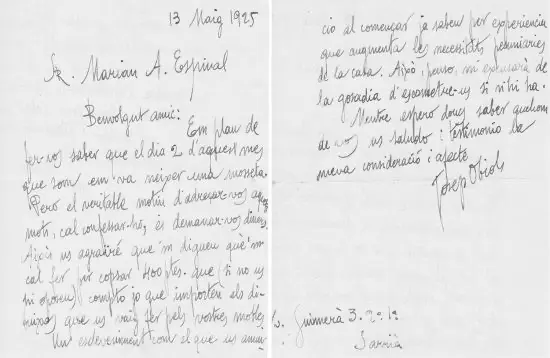 13 Maig 1925
Sr. Marian A. Espinal
Benvolgut amic: Em plau de
fer-vos saber que el dia 2 d'aquest mes
que som em va neixer una mosseta.
Pero el veritable motiu d'adreçar-vos aquests
mots, cal confessar-ho, és demanar-vos diners.
Aixís us agrairé que 'm digueu què 'm
cal fer per copsar 400 ptes. que si no us
hi oposeu compto ja que importen els di-
buixos que us vaig fer pels vostres mobles
Un esdeveniment com el que us anun-
cio al començar ja sabeu per experiencia
que augmenta les necessitats pecuniaries
de la casa. Aixó, penso, mi excusarà de
la gosadia d'escometre-us si n'hi ha.
Mentre espero doncs saber quelcom
de vos us saludo i testimonio la
meva consideració i afecte
Josep Obiols
Guimerà 3. 2º 1ª
Sarrià